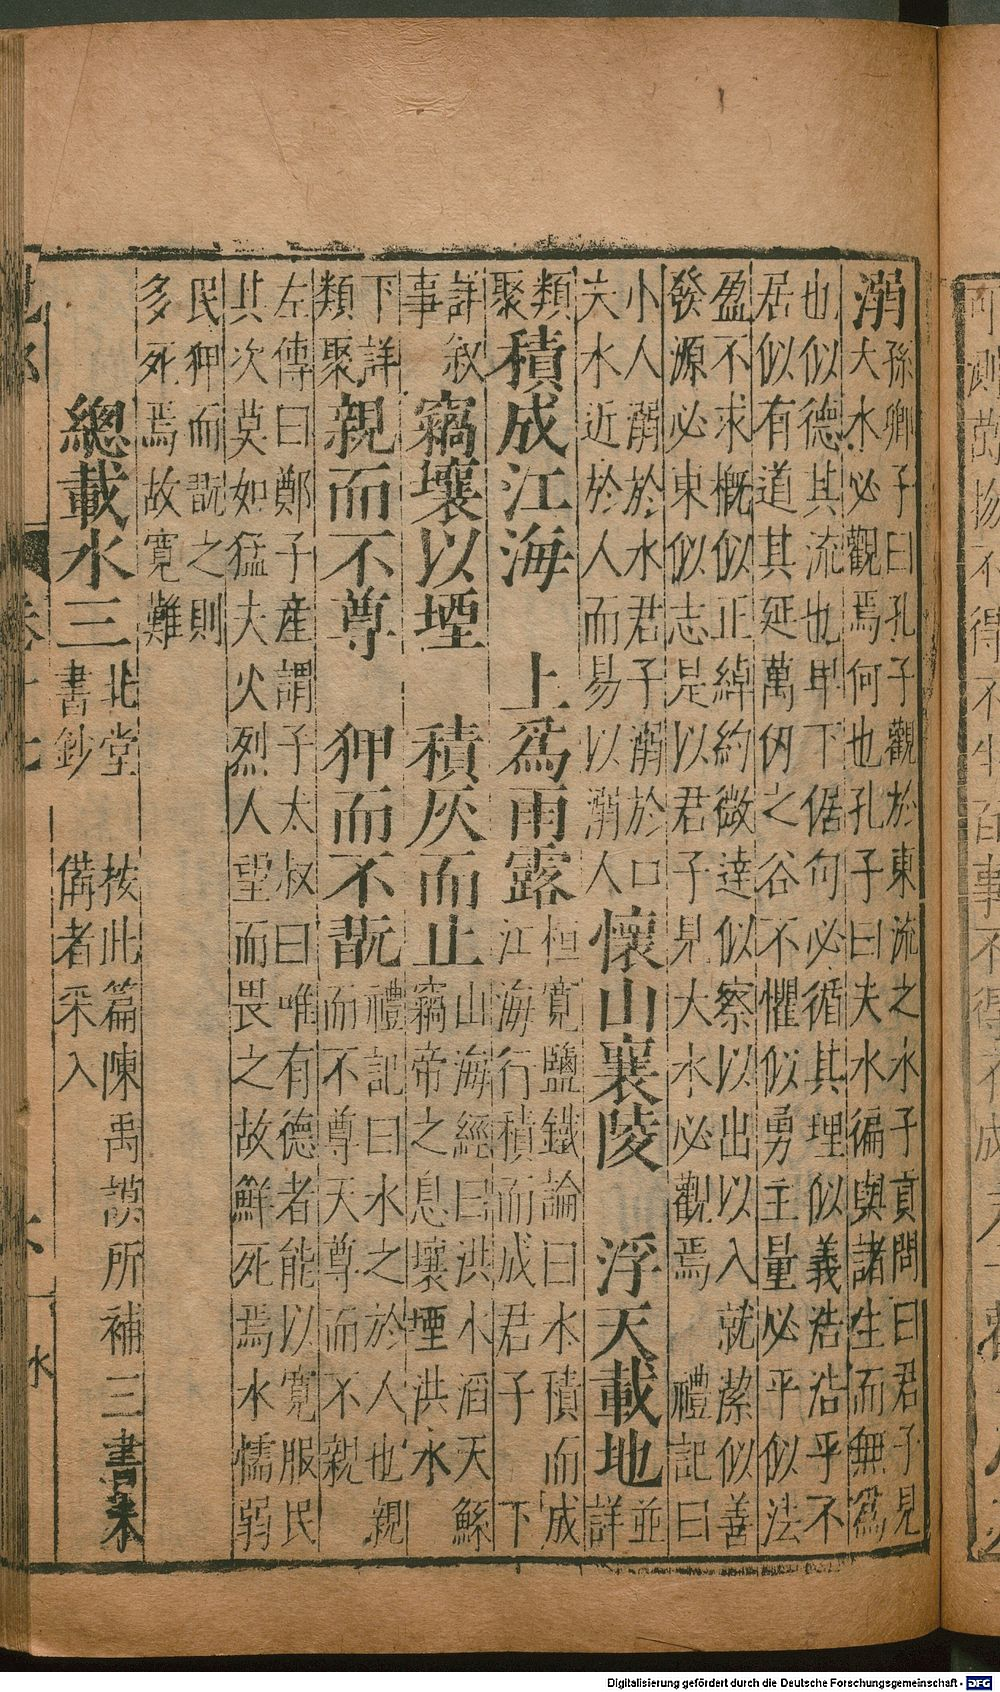 溺
孫卿子曰孔子觀於東流之水子貢問曰君子見
大水必觀焉何也孔子曰夫水徧與諸生而無爲
也似德其流也卑下倨句必循其理似義浩浩乎不
居似有道其延萬仞之谷不懼似勇主量必平似法
盈不求概似正綽約微達似察以出以入 就潔似善
發源必東似志是以君子見大水必觀焉 禮記曰
小人溺於水君子溺於口
夫水近於人而易以溺人
懷山襄陵 浮天載地
並
詳
類
聚
積成江海 上爲雨露
桓寬鹽鐵論曰水積而成
江海行積而成君子 下
詳叙
事
竊壤以堙 積灰而止
山海經曰洪水滔天鯀
竊帝之息壤堙洪水
下詳
類聚
親而不尊 狎而不翫
禮記曰水之於人也親
而不尊天尊而不親
左傳曰鄭子產謂子太叔曰唯有德者能以寬服民
其次莫如猛夫火烈人望而畏之故鮮死焉水懦弱
民狎而翫之則
多死焉故寬難
總載水三
北堂
書鈔
按此篇陳禹謨所補三書未
備者采入
水
Digitalisierung gefördert durch die Deutsche Forschungsgemeinschaft - DFG